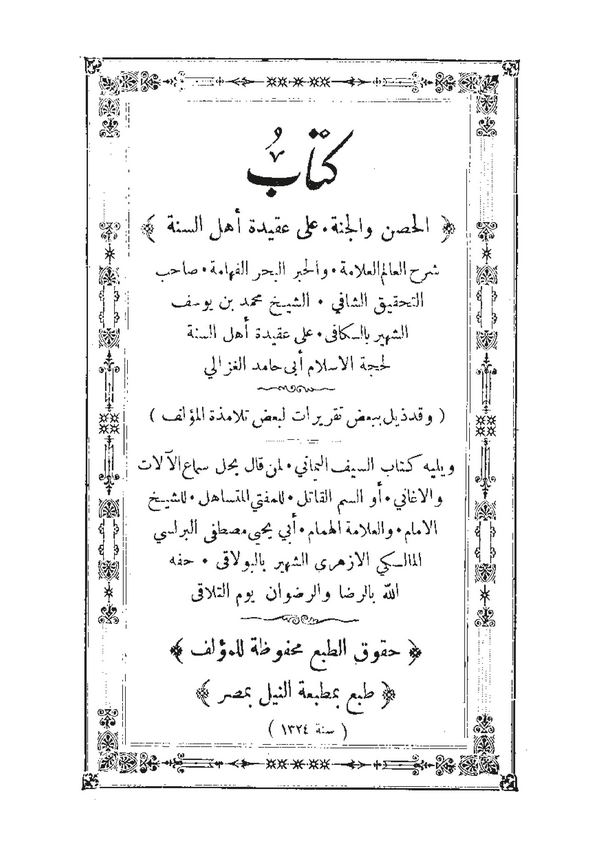 كتابُ
﴿ الحصن والجنة . على عقيدة أهل السنة ﴾
شرح العالم العلامة . والحبر البحر الفهامة . صاحب
التحقيق الشافي . الشيخ محمد بن يوسف
الشهير بالكافى . على عقيدة أهل السنة
لحجة الاسلام أبى حامد الغزالي
( وقد ذيل ببعض تقريرات لبعض تلامذة المؤلف )
ويليه كتاب السيف اليماني . لمن قال يحل سماع الآلات
والاغاني . أو السم القاتل . للمفتي المتساهل . للشيخ
الامام . والعلامة الهمام . أبي يحيى مصطفى البرلسي
المالكي الازهري الشهير بالبولاقى . حفه
الله بالرضا والرضوان يوم التلاقى
﴿ حقوق الطبع محفوظة للمؤلف ﴾
﴿ طبع بمطبعة النيل بمصر ﴾
( سنة ١٣٢٤ )